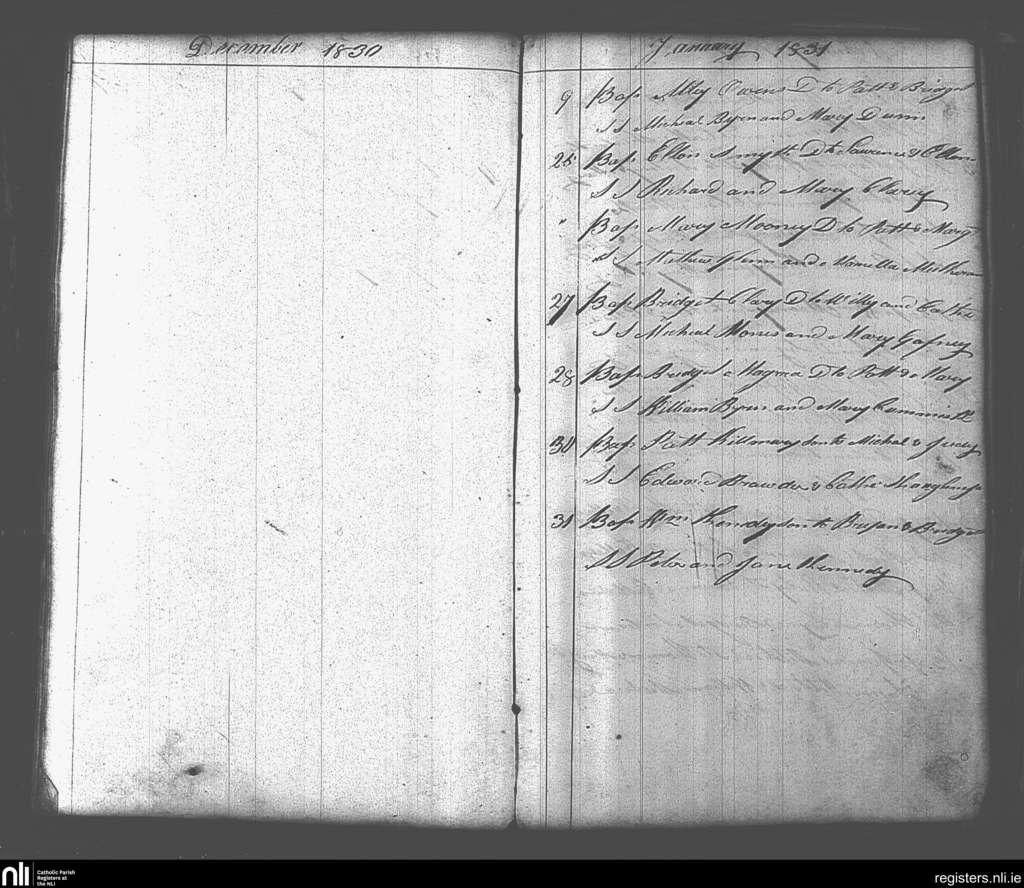 December 1830
January 1831
9 Bap Owens D to Patt & Bridget
S S Micheal Byrn and Mary Dunn
25 Bap Ellen Smyth D to Lawrence & Ellen
S S Richard and Mary Clary
" Bap Mary Mooney D to Patt & Mary
S S Mathew Glenn and
27 Bap Bridget Clary D to Willy and Cathe
S S Micheal Morris and Mary Gafney
28 Bap Bridget D to Patt & Mary
S S William Byrn and Mary
30 Bap Patt son to Michal & Judy
S S Edward & Cathe
31 Bap Wm Kennedy son to Bryan & Bridget
S S Peter and Jane Kennedy
nli
Catholic Parish
Registers at
the NLI
registers.nli.ie